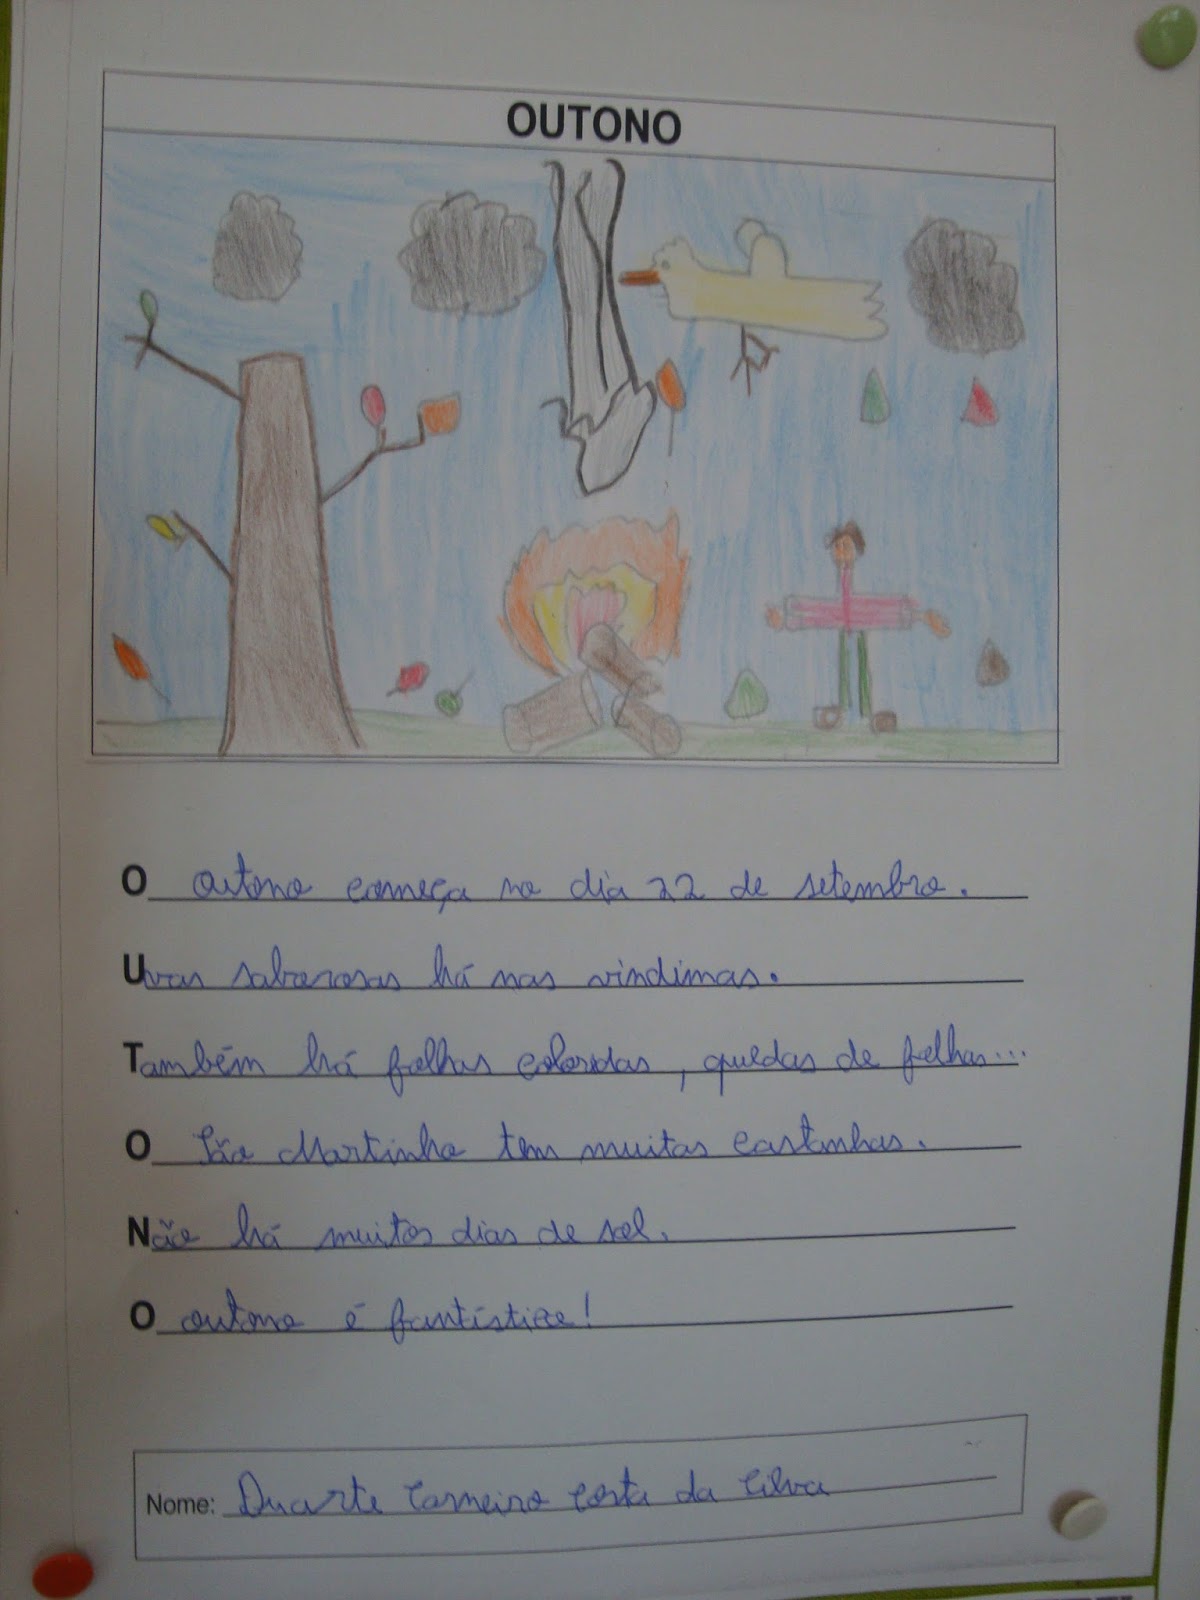 OUTONO
O outono começa no dia 22 de setembro.
Uvas saborosas há nas vindimas.
Também há folhas coloridas, quedas de folhas...
O São Martinho tem muitas castanhas.
Não há muitos dias de sol.
O outono é fantístico!
Nome: Duarte Carneiro Costa da Silva